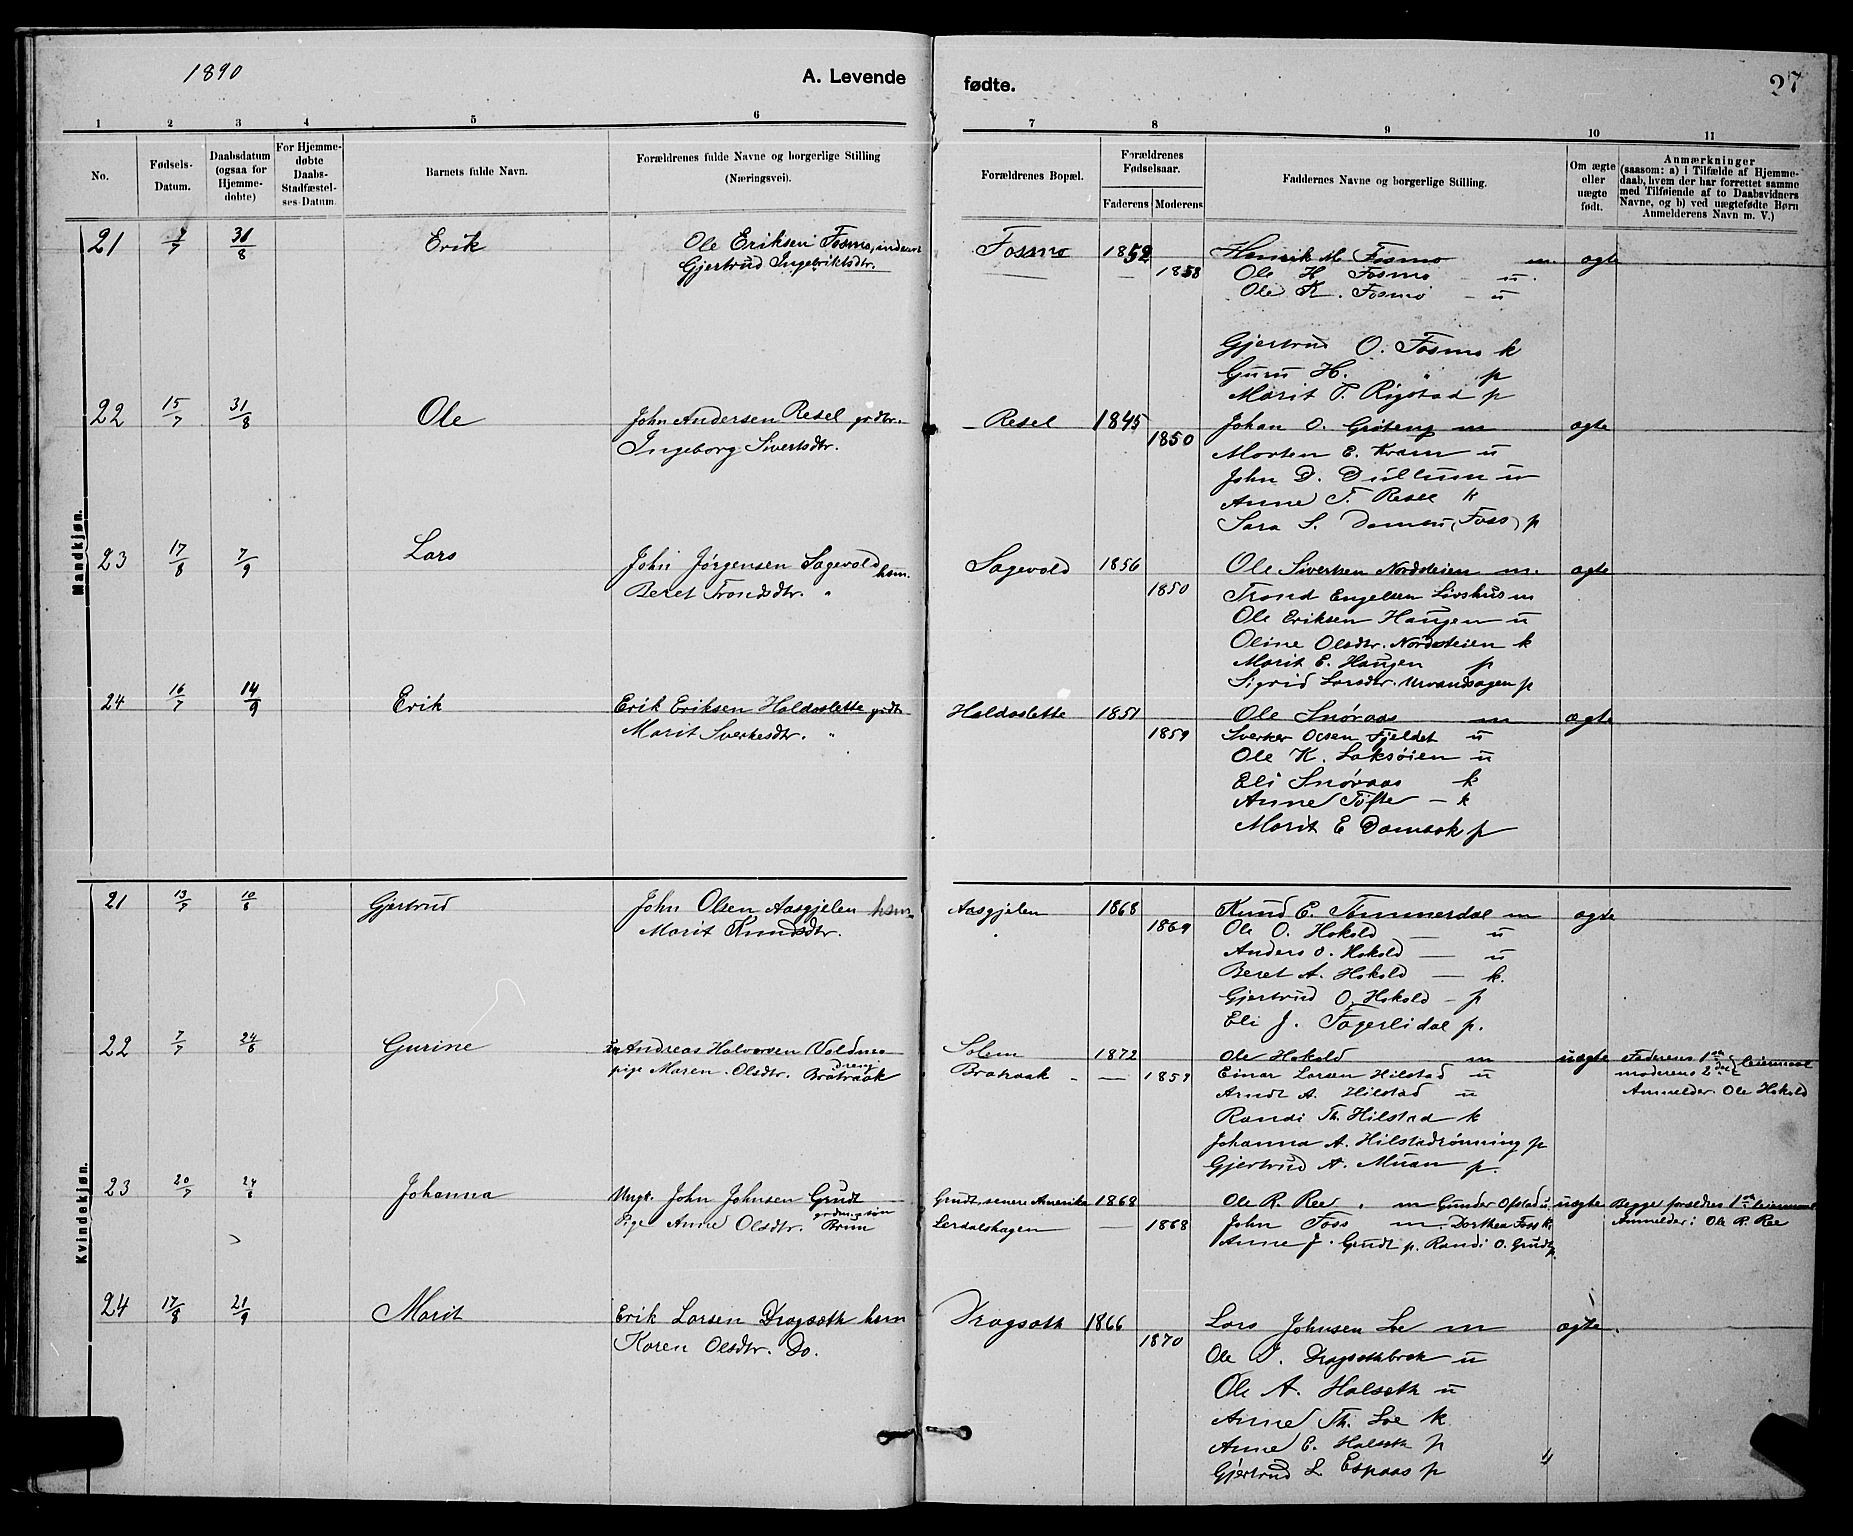 1890
A. Levende fødte.
27
1 2 3 4 5 6 7 8 9 10 11
No.
Fødsels-Datum.
Daabsdatum (ogsaa for Hjemme-døbte)
For Hjemme-døbte Daabs-Stadfæstel-ses-Datum.
Barnets fulde Navn.
Forældrenes fulde Navne og borgerlige Stilling (Næringsvei).
Forældrenes Bopæl.
Forældrenes Fødselsaar.
Faderens Moderens
Faddernes Navne og borgerlige Stilling.
Om ægte eller uægte født.
Anmærkninger
(saasom: a) i Tilfælde af Hjemme-
daab, hvem der har forrettet samme
med Tilføiende af to Daabsvidners
Navne, og b) ved uægtefødte Børn
Anmelderens Navn m. V.)
Mandkjøn.
21 31/8 Erik Ole Eriksen Fosmo Fosmo 1852 Henrik M Fosmo m. ægte
Gjertrud Ingebriktsdtr. 1858 Ole H Fosmo u.
Ole K. Fosmo - u
Gjertrud O. Fosmo k
Guru H. " p
Marit T. Rigstad p
22 15/7 31/8 Ole John Andersen Resel grdbr. Resel 1845 Johan O. Grøteng m ægte
Ingeborg Sivertsdtr. 1850 Morten E. Kvam u
John D. Dullum u
Anne T. Resel k
Sara S. (Foss) p
23 17/8 7/9 Lars John Jørgensen Sagevold hsm. Sagevold 1856 Ole Sivertsen Nordsteien m. ægte
Beret Trondsdtr. " 1850 Trond Engelsen m
Ole Eriksen Haugen u
Oline Olsdtr. Nordsteien k
Marit E. Haugen p
Sigrid Larsdtr. p
24 16/7 14/9 Erik Erik Eriksen Haldoslette grdbr Haldoslette 1851 Ole Snøraas m ægte
Marit Sverkesdtr. " 1859 Sverker Olsen Fjeldet u
Ole K. Laksøien u
Eli Snøraas k
Anne Tøfte - k
Marit E p
Kvindekjøn.
21 13/7 10/8 Gjertrud John Olsen Aasgjelen hsm. Aasgjelen 1868 Knud E. Tømmerdal m ægte
Marit Knudsdtr. " 1869 Ole O. Hokold — u
Anders O. Hokold — u
Beret A. Hokold — k.
Gjertrud O. Hokold - p
Eli J. Fagerlidal p.
22 7/7 24/8 Gurine Andreas Halvorsen Voldmo dreng Solem 1872 Ole Hokold m uægte Faderens 1ste
pige Maren Olsdtr. Bratraak Bratraak - — 1859 Einar Larsen Hilstad u moderens 2det leiermaal
Arndt A. Hilstad u Anmelder. Ole Hokold
Randi Th. Hilstad k
Johanna A. Hilstadrønning p
Gjertrud A. Muan p.
23 20/7 24/8 Johanna Ungk. John Johnsen Grudt Grudt, senere Amerika 1868 Ole R. Ree. m Gunder Opstad u. uægte Begge foreldres 1ste leiermaal
Pige Anne Olsdtr. Brun Lerdalshagen — 1868 John Foss m. Dorthea Foss k. Anmelder: Ole R. Ree
Anne J. Grudt p. Randi O. Grudt p.
24 17/8 21/9 Marit Erik Larsen Dragseth hsm Dragseth 1866 Lars Johnsen Loe m ægte.
Karen Olsdtr. Do. 1870 Ole J. Dragsethbrek u
Ole A. Halseth u
Anne Th. Loe k
Anne E. Halseth p
Gjertrud L Espaas p